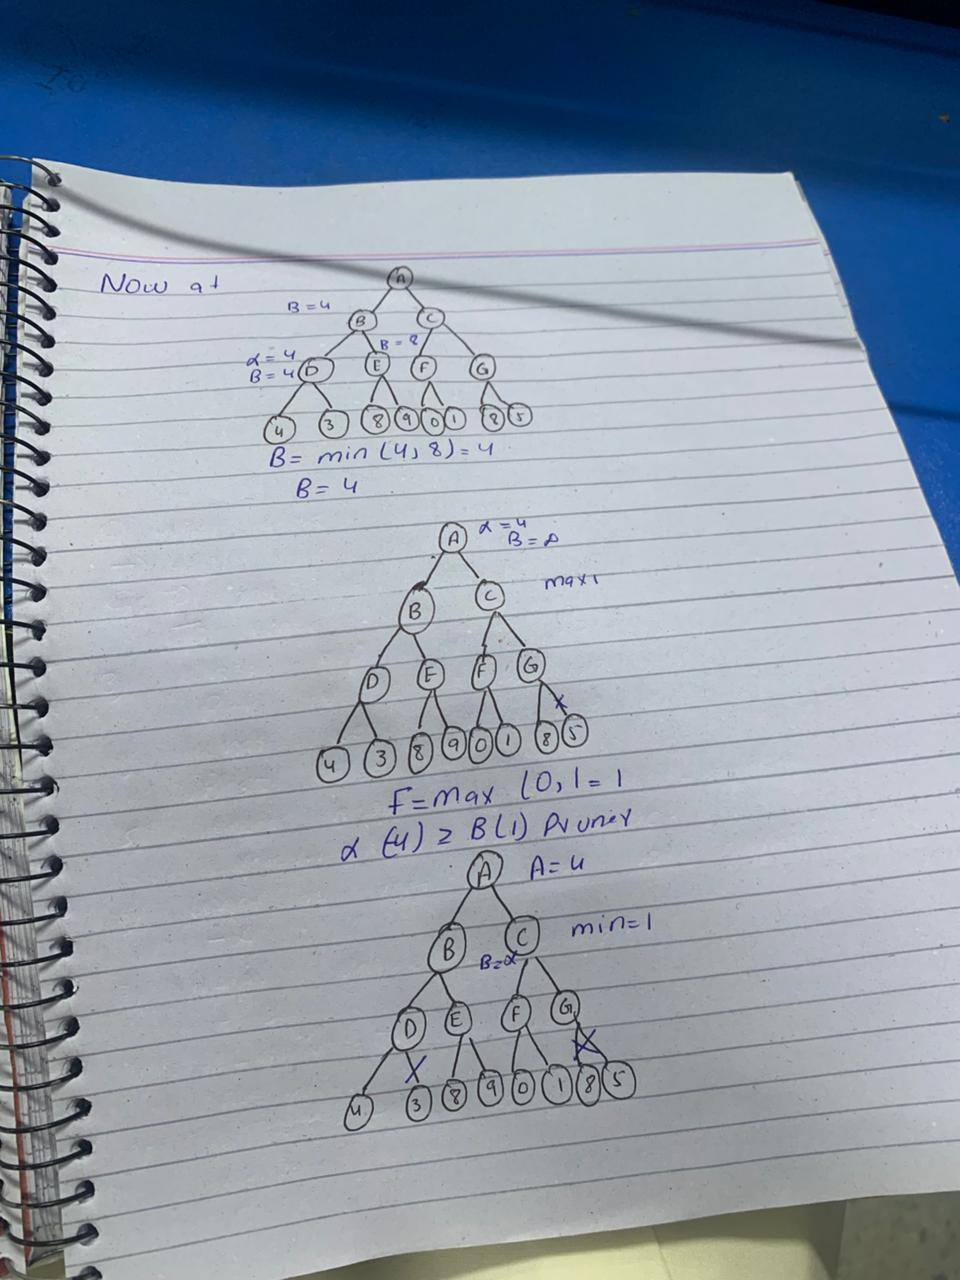 Now at
A
B = 4
B C
B = 8
α = 4
B = 4 D E F G
4 3 8 9 0 1 8 5
B = min (4, 8) = 4
B = 4
A α = 4
B = ∞
B C max
D E F G
x
4 3 8 9 0 1 8 5
F = max (0, 1 = 1
α (4) ≥ B(1) Pruner
A A = 4
B C min = 1
B = α
D E F G
X X
4 3 8 9 0 1 8 5